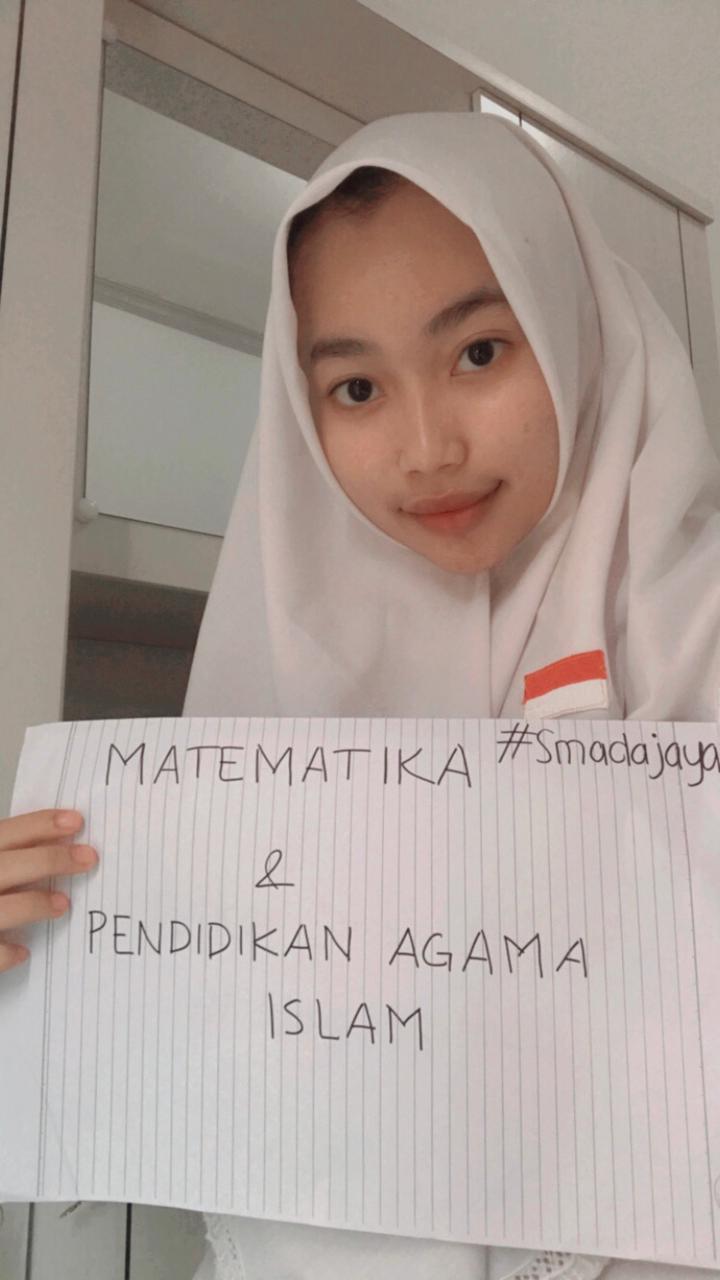 MATEMATIKA #Smadajaya
&
PENDIDIKAN AGAMA
ISLAM